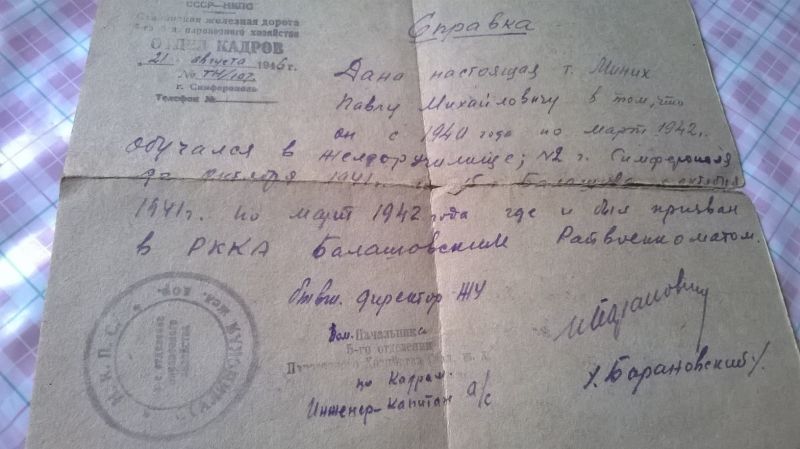 СССР–НКПС
Сталинская железная дорога
паровозного хозяйства
ОТДЕЛ КАДРОВ
"21" августа 1946 г.
№ ТН/107
г. Симферополь
Телефон №
Справка
Дана настоящая т. Миних
Павлу Михайловичу в том, что
он с 1940 года по март 1942 г.
обучался в Желдоручилище; №2 г. Симферополя
до октября 1941 г. Балашова с октября
1941 г. по март 1942 года где и был призван
в РККА Балашовским Райвоенкоматом.
бывш. Директор ЖУ
Зам. Начальника
5-го отделения
Паровозного Хозяйства Стал. ж. д.
по Кадрам.
Инженер-Капитан а/с
/. Барановский /.
Н. К. П. С.